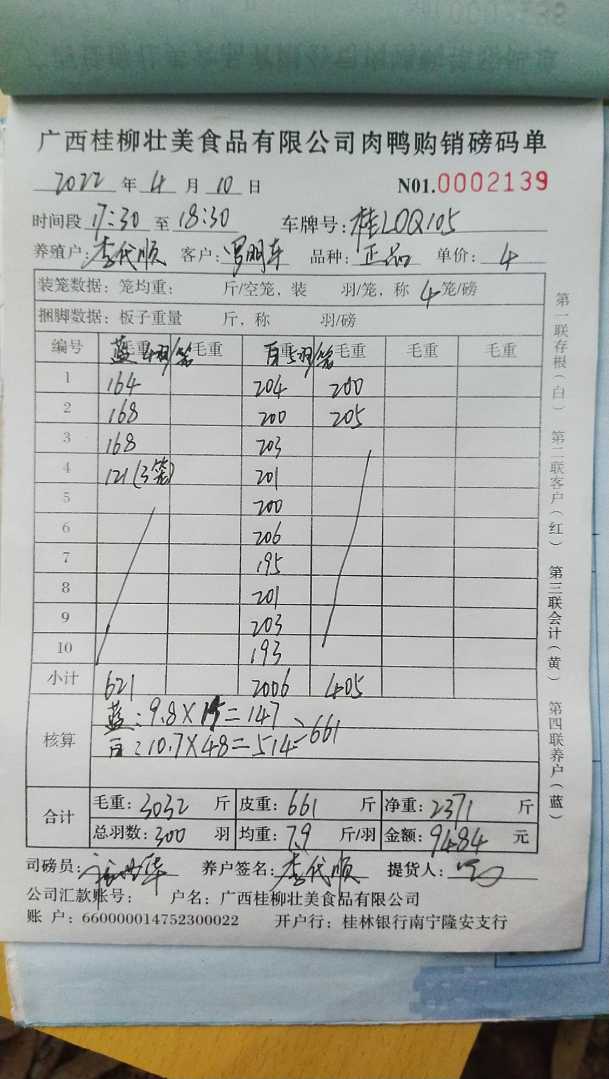 广西桂柳壮美食品有限公司肉鸭购销磅码单
2022 年 4 月 10 日 N01.0002139
时间段 17:30 至 18:30 车牌号: 桂L0Q105
养殖户: 李代顺 客户: 品种: 正品 单价: 4
装笼数据: 笼均重: 斤/空笼, 装 羽/笼, 称 4 笼/磅
捆脚数据: 板子重量 斤, 称 羽/磅
编号 毛重 毛重 毛重 毛重 毛重 毛重
蓝 4羽/笼 白 5羽/笼
1 164 204 200
2 168 200 205
3 168 203
4 121(3笼) 201
5 200
6 206
7 195
8 201
9 203
10 193
小计 621 2006 405
核算 蓝:9.8X15=147
白:10.7X48=514 =661
合计 毛重: 3032 斤 皮重: 661 斤 净重: 2371 斤
总羽数: 300 羽 均重: 7.9 斤/羽 金额: 9484 元
司磅员: 养户签名: 李代顺 提货人:
公司汇款账号: 户名: 广西桂柳壮美食品有限公司
账 户: 660000014752300022 开户行: 桂林银行南宁隆安支行
第一联存根(白) 第二联客户(红) 第三联会计(黄) 第四联养户(蓝)